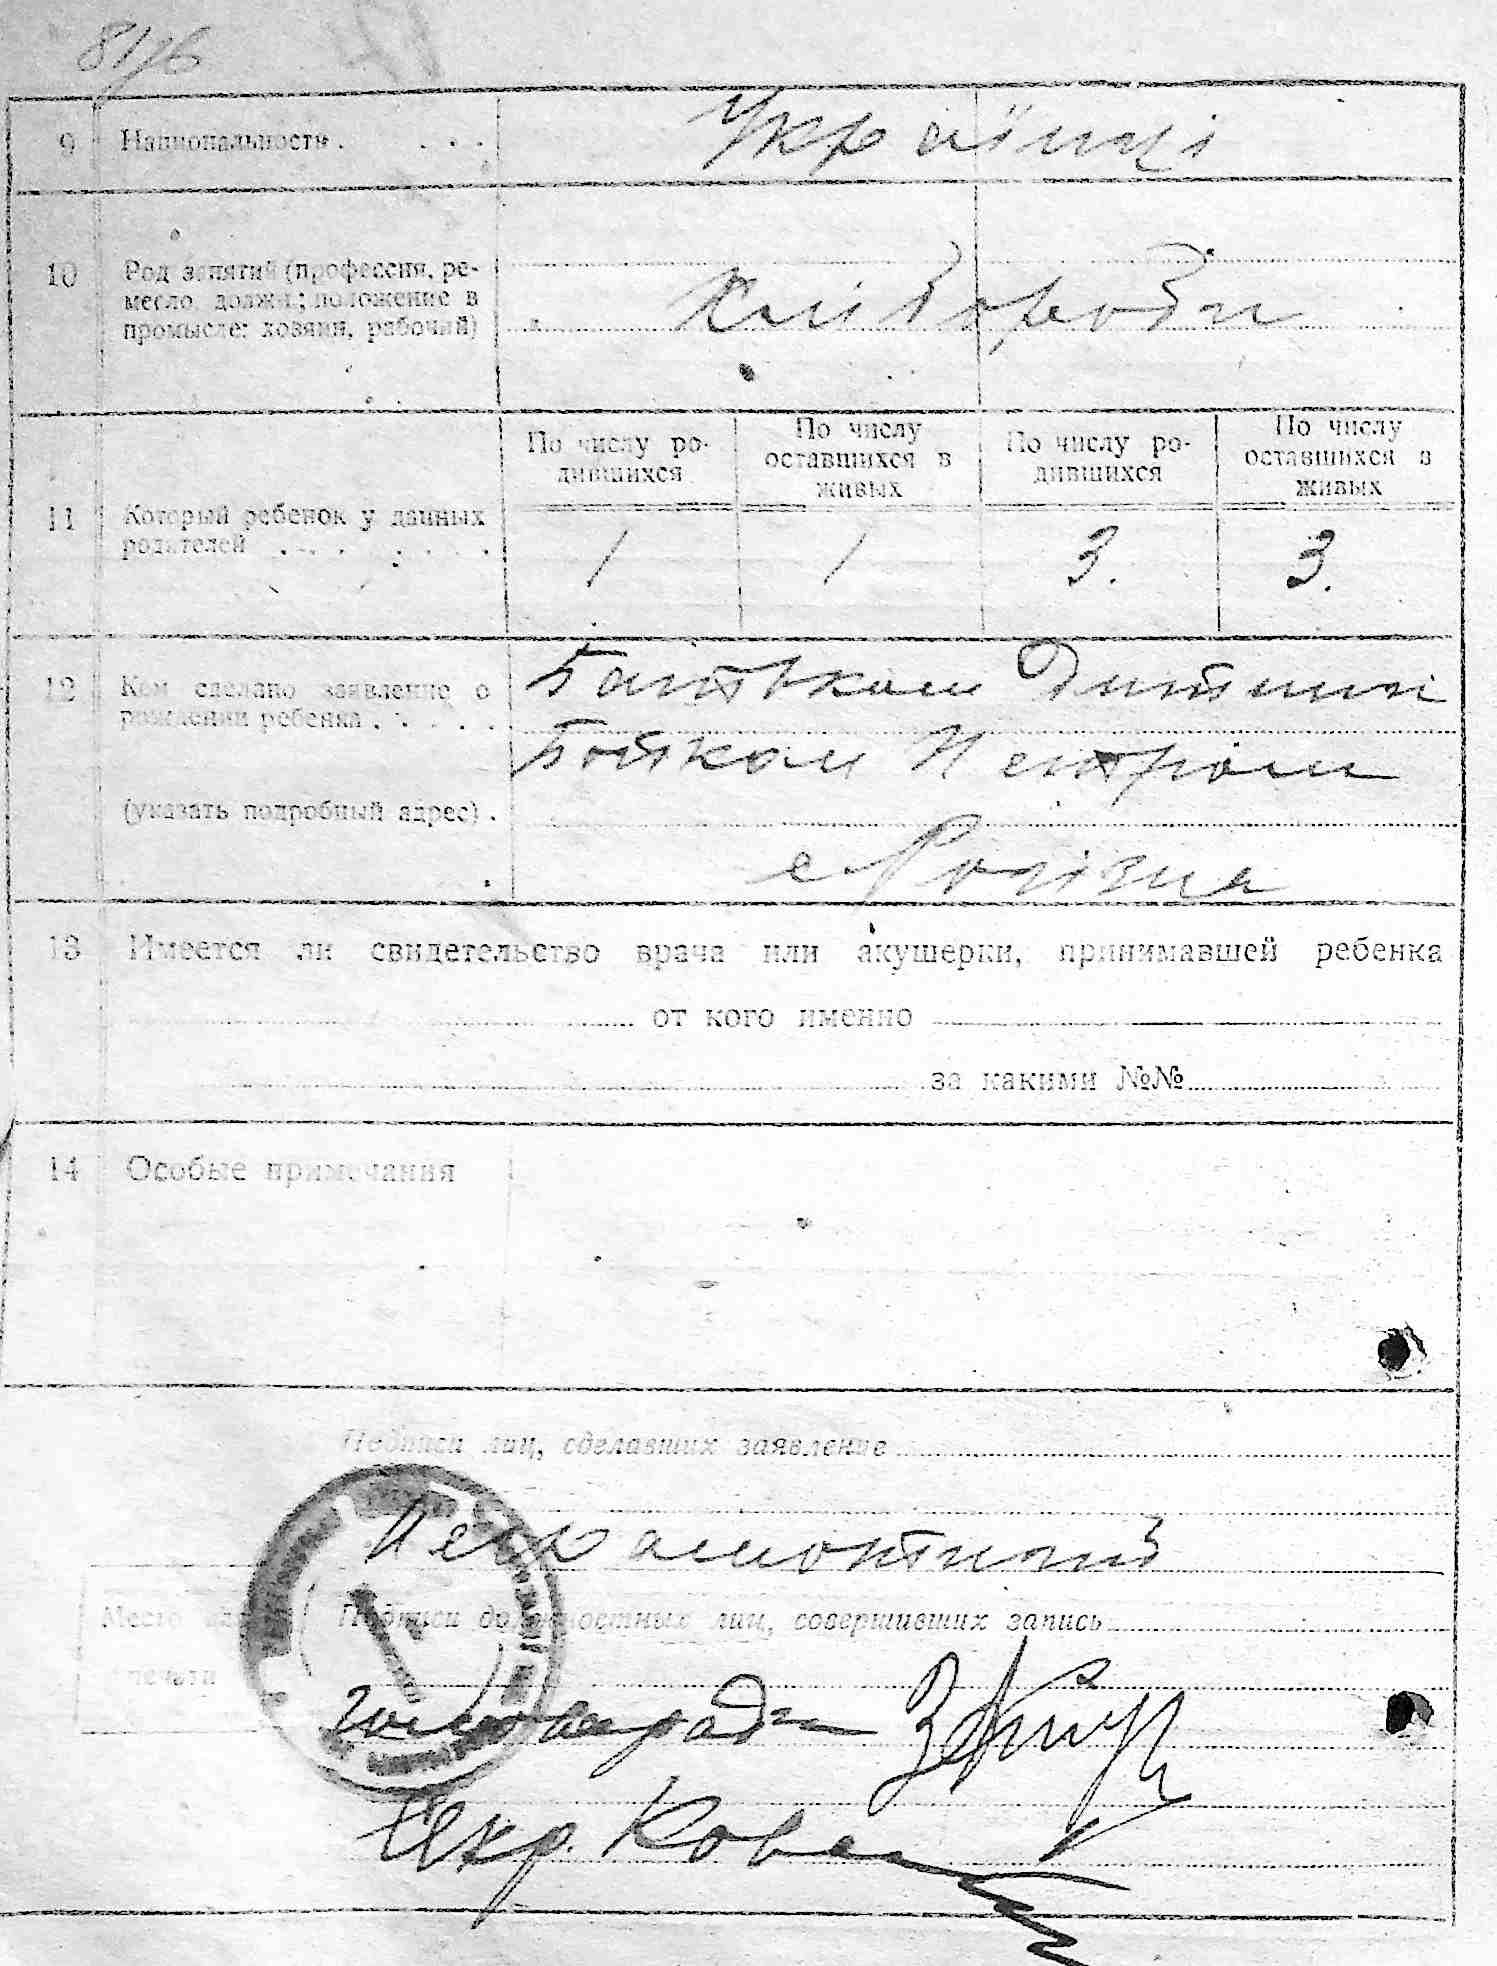 81/6
9 Национальность . . . . Українці
10 Род занятий (профессия, ре-
месло, должн.; положение в
промысле: хозяин, рабочий)
Хліборобы
По числу ро-
дившихся
По числу
оставшихся в
живых
По числу ро-
дившихся
По числу
оставшихся в
живых
11 Который ребенок у данных
родителей . . . . . . .
1 1 3. 3.
12 Кем сделано заявление о
рождении ребенка . . . . .
Батьком дитини
Бойком Петром
(указать подробный адрес) .
с
13 Имеется ли свидетельство врача или акушерки, принимавшей ребенка
от кого именно
за какими №№
14 Особые примечания
Подписи лиц, сделавших заявление
Место
печати
Подписи должностных лиц, совершивших запись
голова ради
Секр.